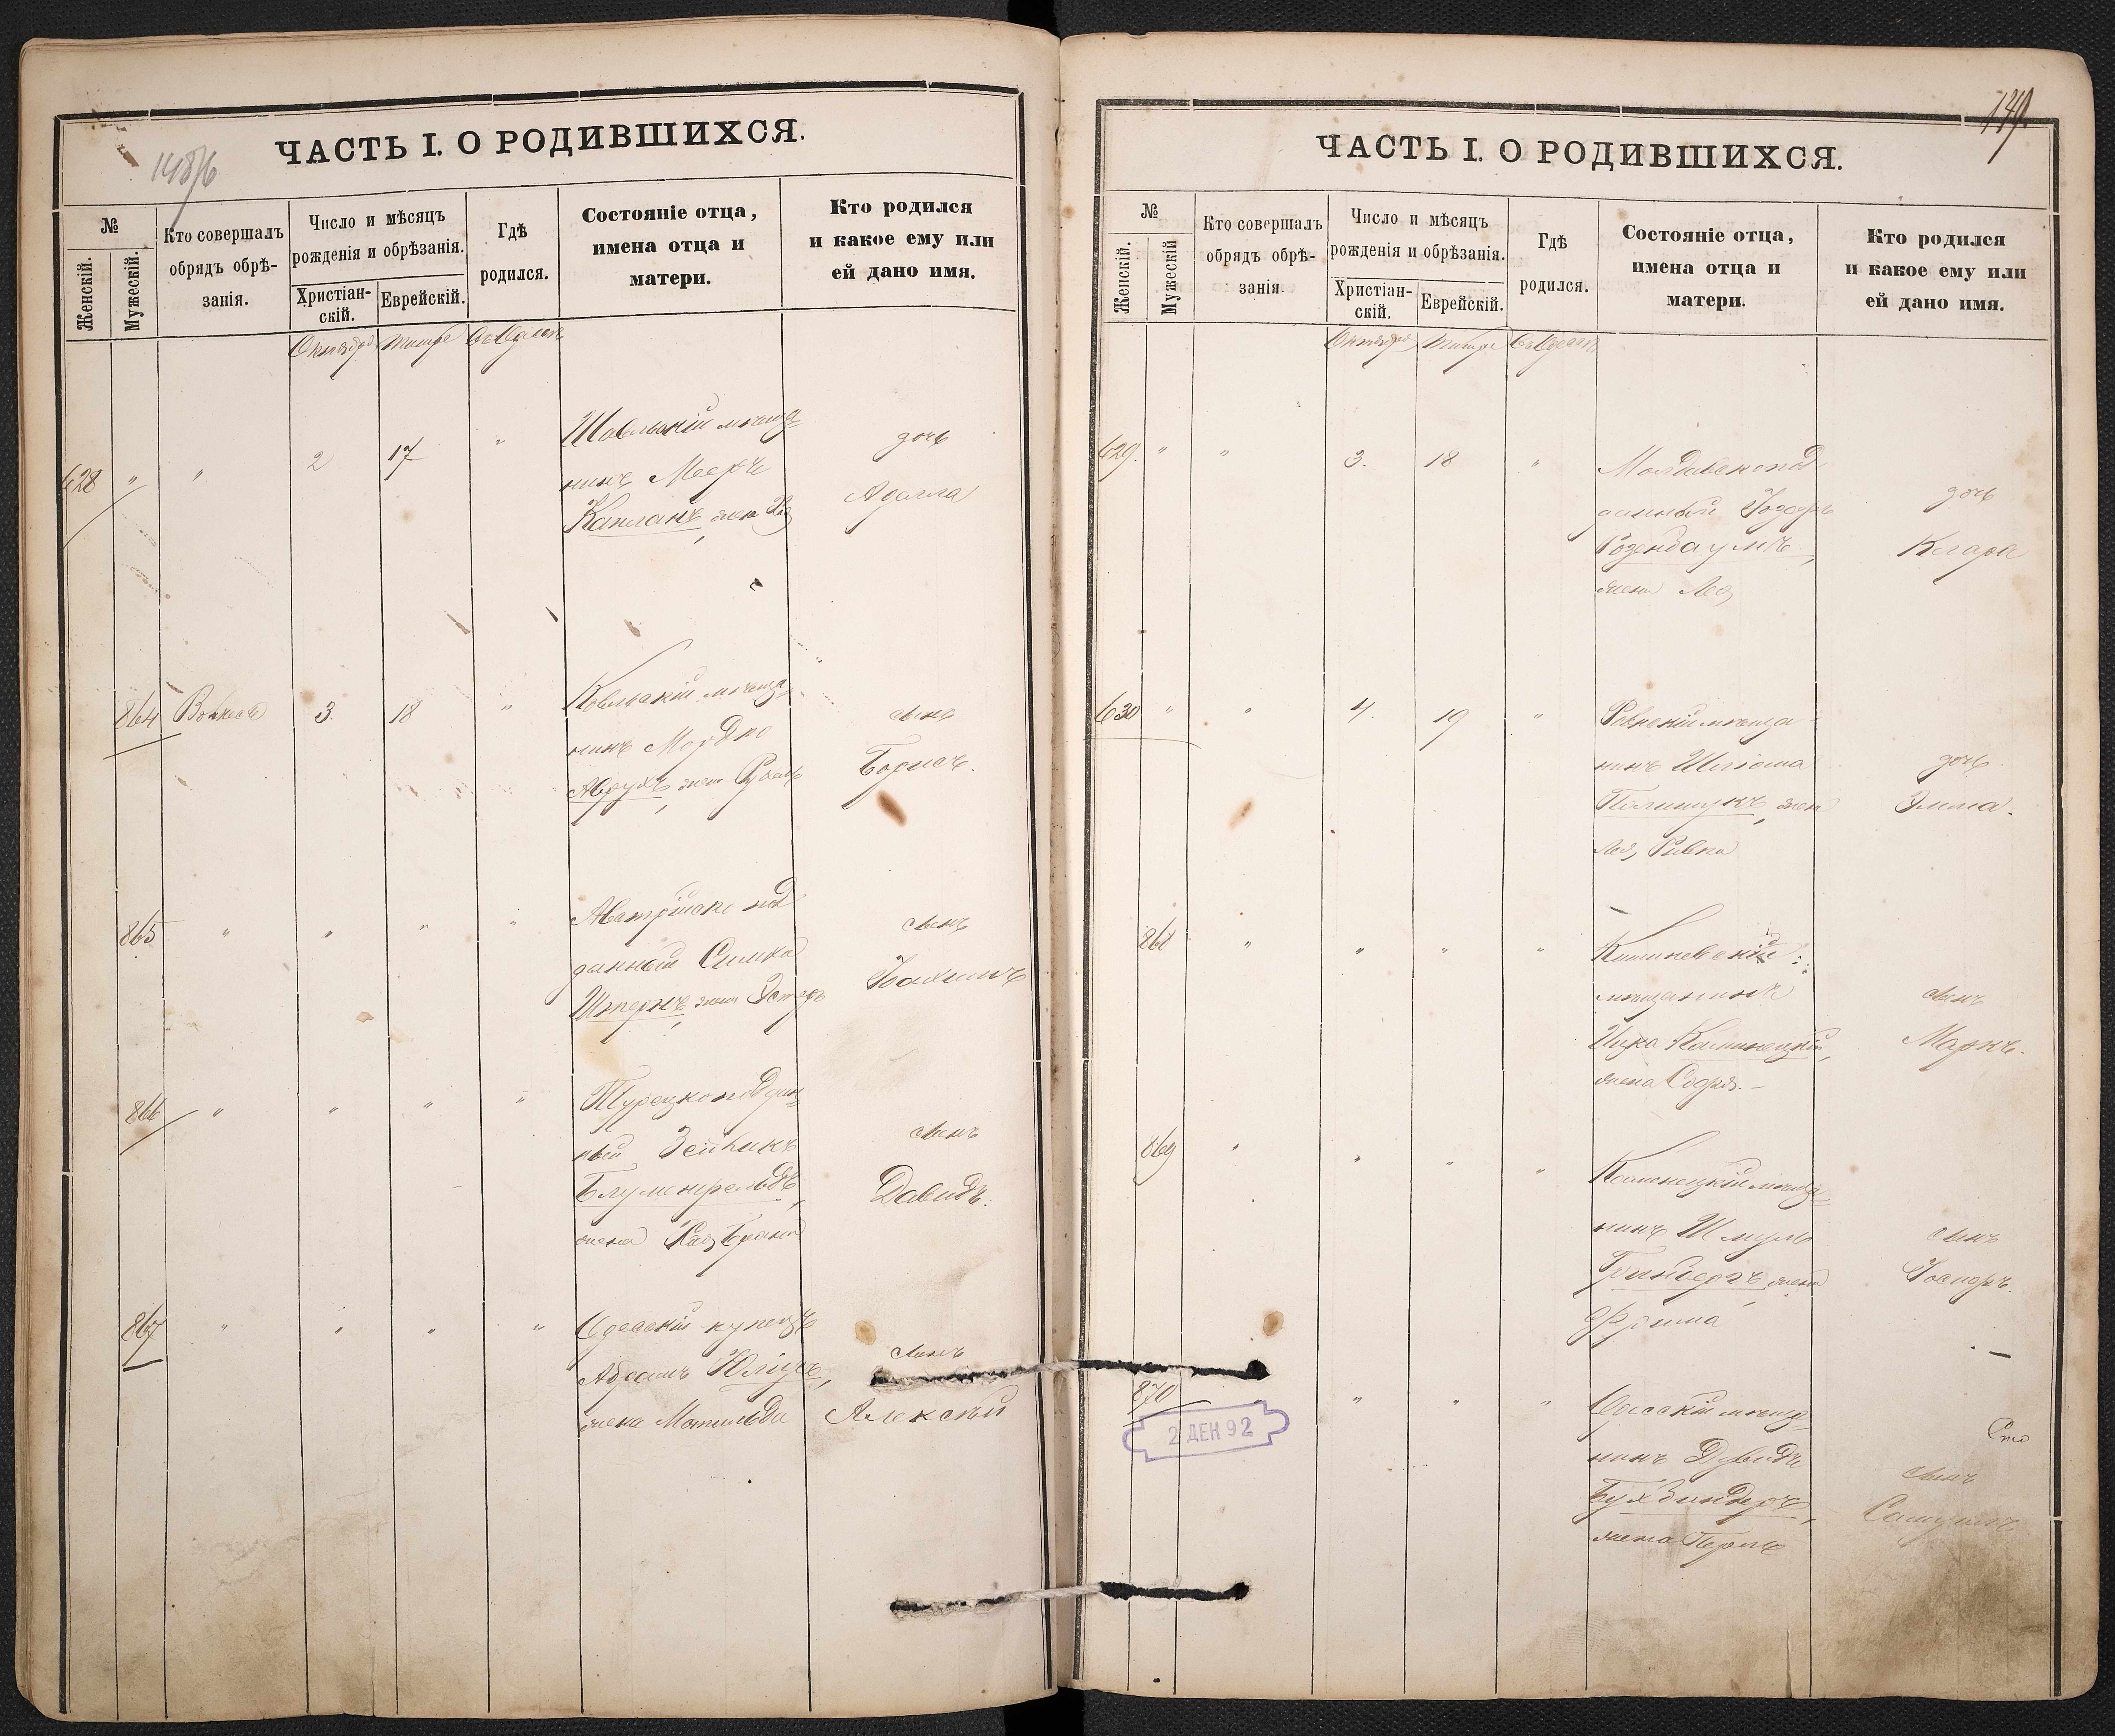 ЧАСТЬ I. О РОДИВШИХСЯ.
№
Женскій.
Мужескій.
Кто совершалъ
обрядъ обрѣ-
занія.
Число и мѣсяцъ
рожденія и обрѣзанія.
Христіан-
скій.
Еврейскій.
Гдѣ
родился.
Состояніе отца,
имена отца и
матери.
Кто родился
и какое ему или
ей дано имя.
Октября Тишре Въ Одессѣ
628 " " 2 17 "
мѣща
нинъ Мееръ
Капланъ, жена
дочь
Аделла
864 3. 18 "
Ковельскій мѣща
нинъ Мордко
жена
сынъ
Борисъ.
865 " " " "
Австрійско под
данный Симха
Штернъ, жена Эстеръ
сынъ
Іоахимъ
866 " " " "
Турецкоподдан
ный
Блуменфельдъ,
жена Хая
сынъ
Давидъ.
867 " " " "
Одесскій купецъ
Абрамъ
жена Матильда
сынъ
Алексѣй
149.
ЧАСТЬ I. О РОДИВШИХСЯ.
№
Женскій.
Мужескій
Кто совершалъ
обрядъ обрѣ-
занія.
Число и мѣсяцъ
рожденія и обрѣзанія.
Христіан-
скій.
Еврейскій.
Гдѣ
родился.
Состояніе отца,
имена отца и
матери.
Кто родился
и какое ему или
ей дано имя.
Октября Тишре Въ Одессѣ
629. " " 3. 18 "
Молдавскопод
данный
Розенбаумъ,
жена Лея
дочь
Клара
630 " " 4. 19 "
Ровенскій мѣща
нинъ Шліома
Полищукъ, жена
Лея Ривка
дочь
Эмма.
868 " " " "
Кишиневскій
мѣщанинъ
Каминецкій,
жена Софья. -
сынъ
Маркъ.
869 " " " "
Каменецкій мѣща
нинъ Шмуль
Гринбергъ, жена
Фрима
сынъ
870 " " "
2 ДЕК 92
Одесскій мѣща
нинъ Дувидъ
Бухбиндеръ,
жена Перль
сынъ
Самуилъ